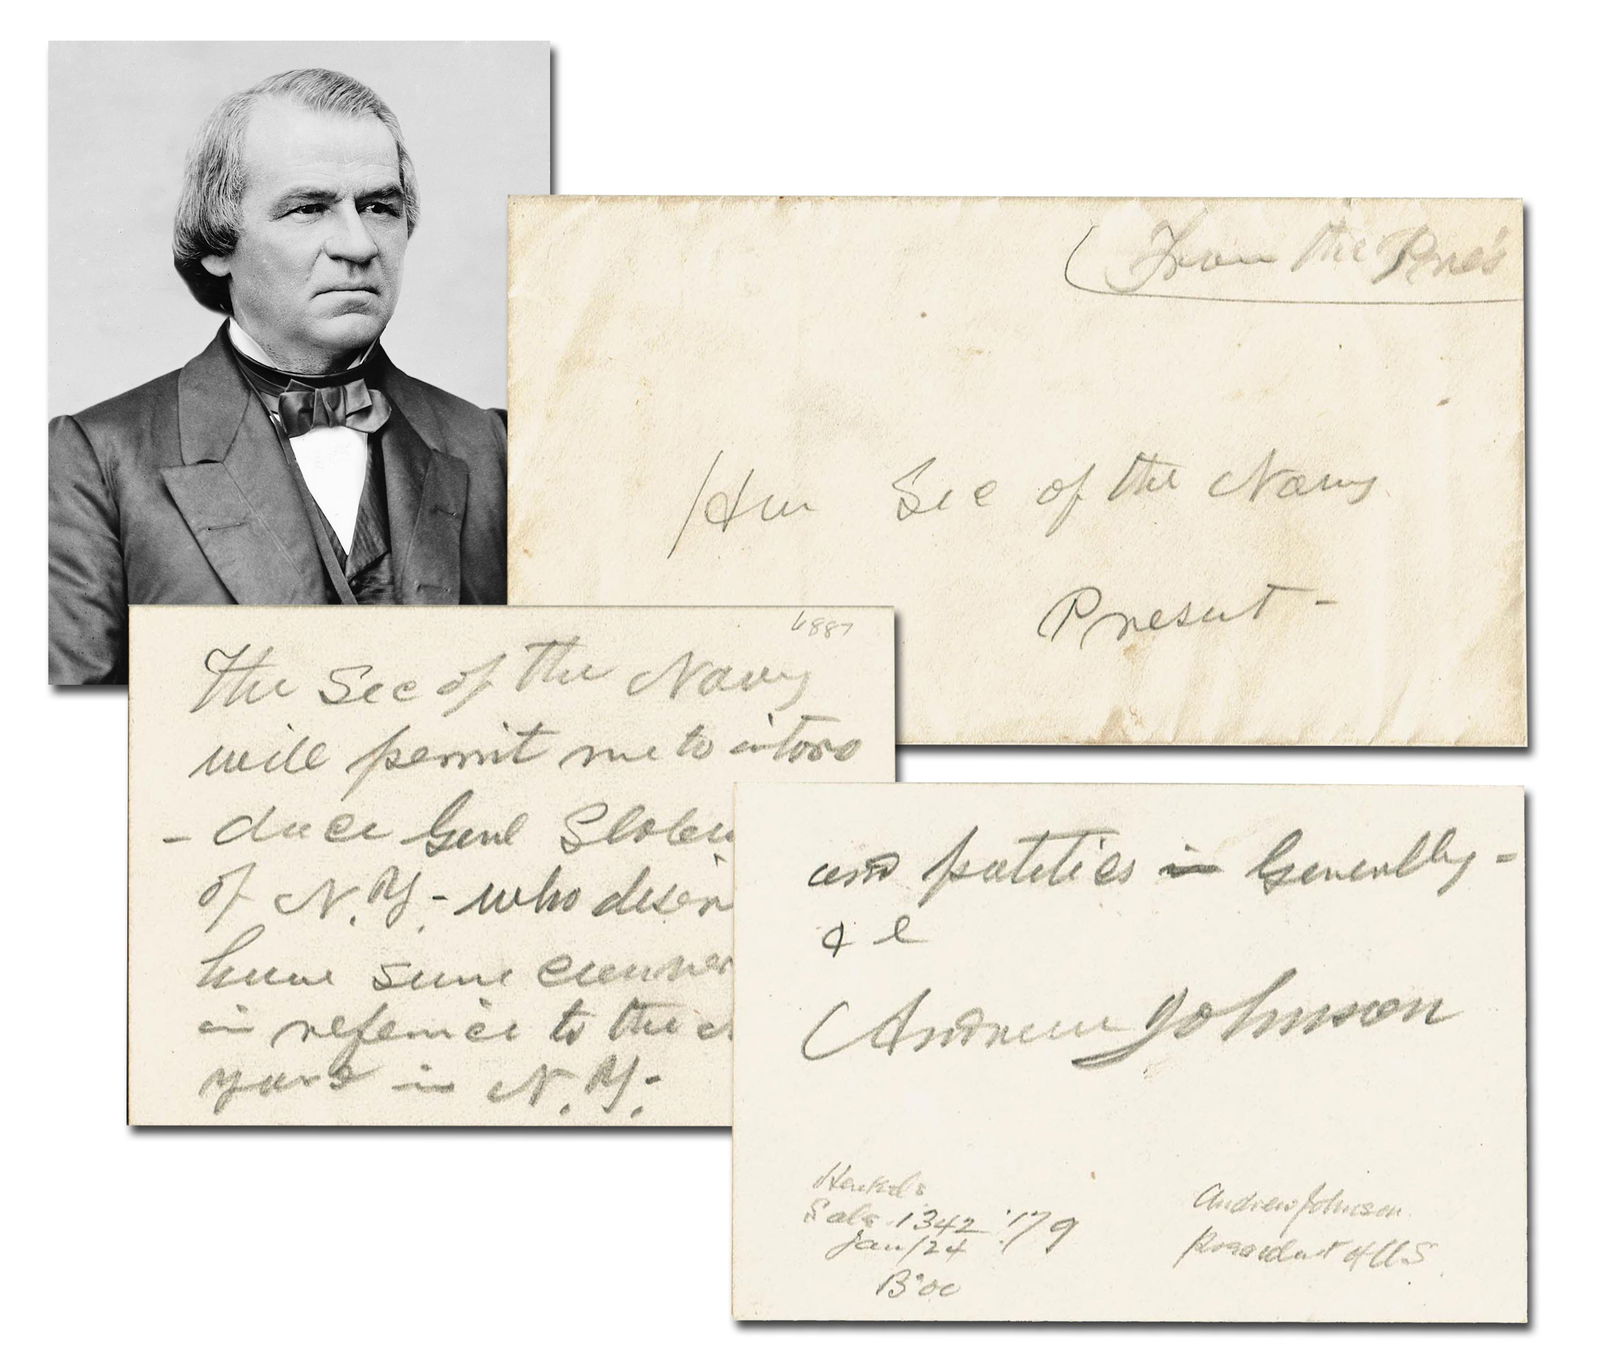 (From the Pres's
Hon Sec of the Navy
Present -
6887
The Sec of the Navy
will permit me to intro
- duce Genl Slocu
of N.Y. - who desir
have some conver
in refernce to the
yard in N.Y.
and polities in Generally =
& c
Andrew Johnson
Henkels
Sale 1342 '179
Jan/24
Andrew Johnson
President of US